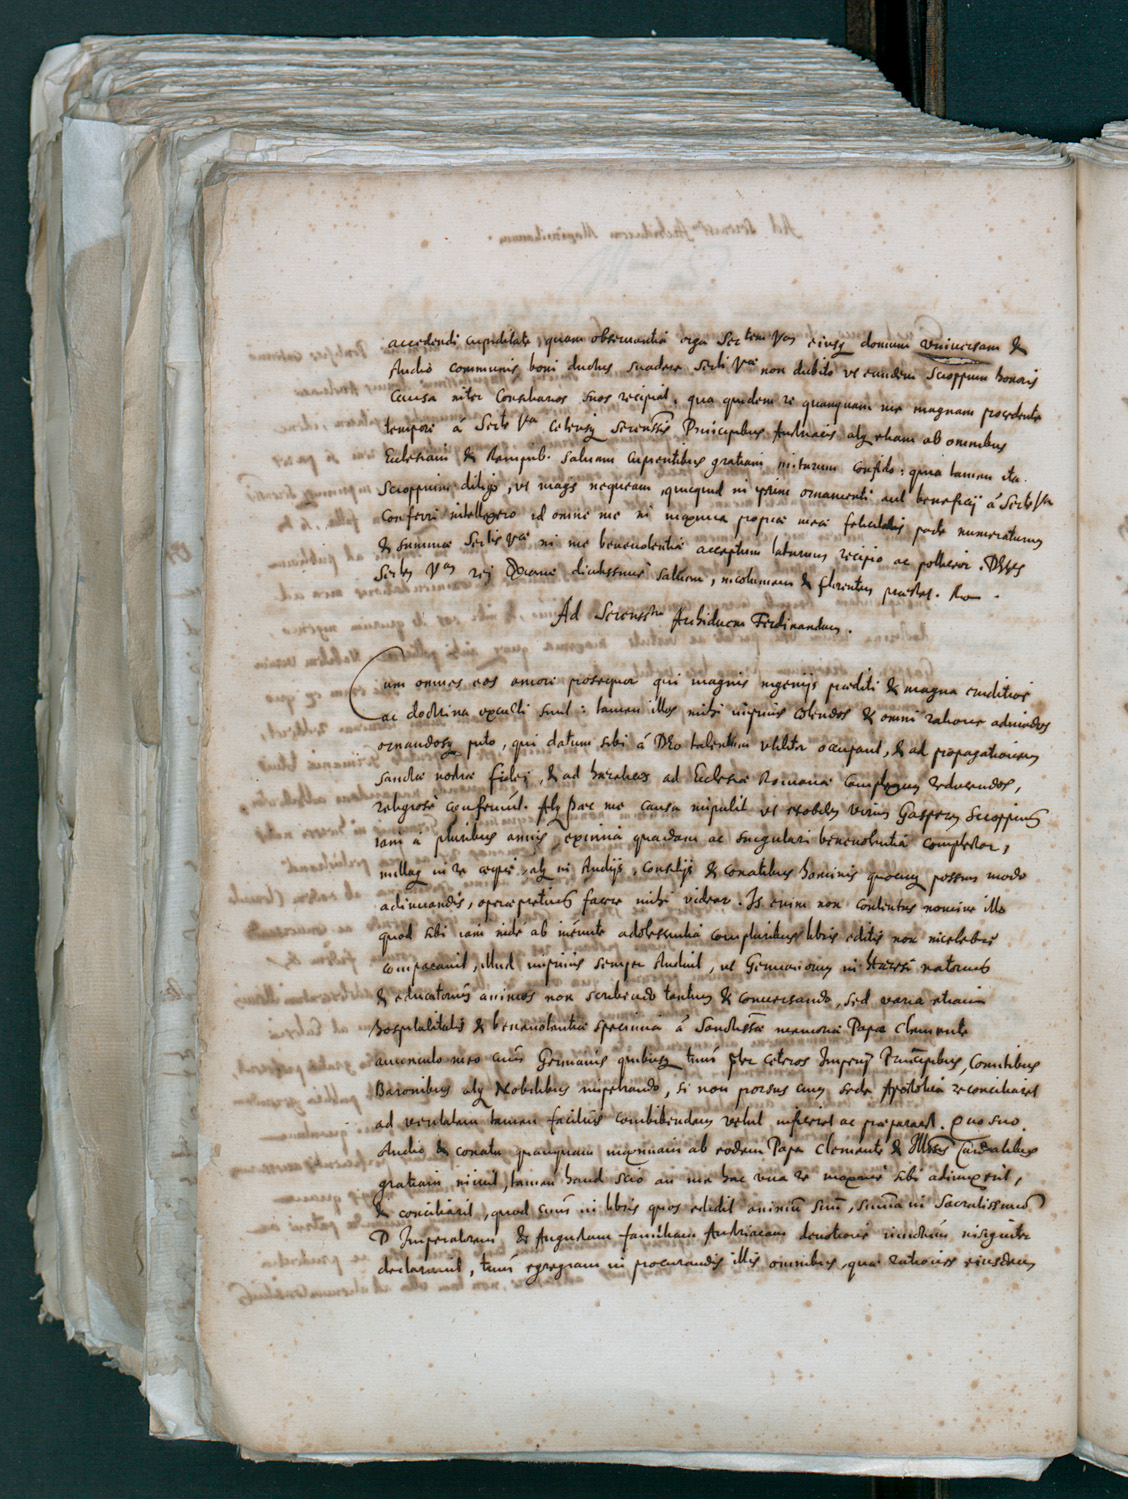 accedendi cupiditate, quam obseruantia erga Ser.tem V.am eiusq domum vniuersam &
studio communis boni ductus suadere Ser.ti V.ae non dubito vt eundem Scioppium honoris
causa inter Consiliarios suos recipiat, qua quidem re quanquam me magnam procedente
tempore à Ser.te V.a ceterisq Seren.mis Principibus Austriacis atq etiam ab omnibus
Ecclesiam & Rempub. saluam cupientibus gratiam initurum confido: quia tamen ita
Scioppium diligo, vt magis nequeam, quicquid in ipsum ornamenti aut beneficij à Ser.te V.a
conferri intellegero id omne me in maxima propriae meae felicitatis parte numeraturum
& summae Ser.tis V.ae in me beneuolentiae acceptum laturum recipio ac polliceor. Deus
Ser.tem V.am rei Christianae diutissime saluam, incolumem & florentem praestet. Ro
Ad Sereniss.m Archiducem Ferdinandum.
Cum omnes eos amore prosequor qui magnis ingenijs praediti & magna eruditione
ac doctrina exculti sunt: tamen illos mihi inprimis colendos & omni ratione adiuuandos
ornandosq puto, qui datum sibi à Deo talentum vtiliter occupant, & ad propagationem
sanctae nostrae fidei, & ad haereticos ad Ecclesiae Romanae complexum reducendos,
religiosè conferunt. Atq haec me causa impulit vt nobilem virum Gasparem Scioppium
iam à pluribus annis, eximia quadam ac singulari beneuolentia complectar,
nullaq in re aequè, atq in studijs, consilijs & conatibus hominis quocunq possum modo
adiuuandis, operaepretium facere mihi videar. Is enim non contentus nomine illo
quod sibi iam inde ab ineunte adolescentia compluribus libris editis non incelebre
comparauit, illud inprimis semper studuit, vt Germanorum in haeresi natorum
& educatorum animos non scribendo tantum & conuersando, sed varia etiam
hospitalitatis & beneuolentiae specimina à Sanctissae memoriae Papa Clemente
auunculo meo cum Germanis quibusq tum per ceteros Imperij Principibus, Comitibus
Baronibus atq Nobilibus impetrando, si non prorsus cum sede Apostolica reconciliaret
ad veritatem tamen facilius combibendam velut inficeret ac praepararet. Quo suo
studio & conatu quanquam maximam ab eodem Papa Clemente & Ill.mis Cardinalibus
gratiam iniuit, tamen haud scio an me hac vna re maximè sibi adiunxerit,
& conciliarit, quod cum in libris quos edidit animum suum, summa in Sacratissimum
D Imperatorem & Augustam familiam Austriacam deuotione imbutum insigniter
declarauit, tum egregiam in procurandis illis omnibus, quae rationes eiusdem